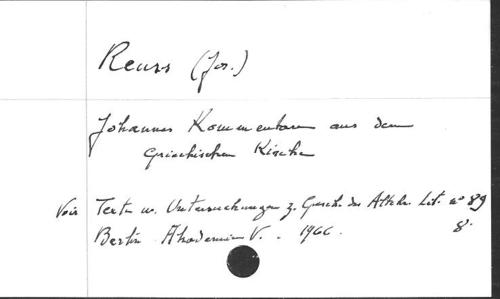 Reuss (Jos.)
Johannes Kommentare aus der
Griechischen Kirche
Voir Texte u. Untersuchungen z. Gesch. der Altchr. Lit. n° 89
Berlin Akademie V. . 1966. 8°.